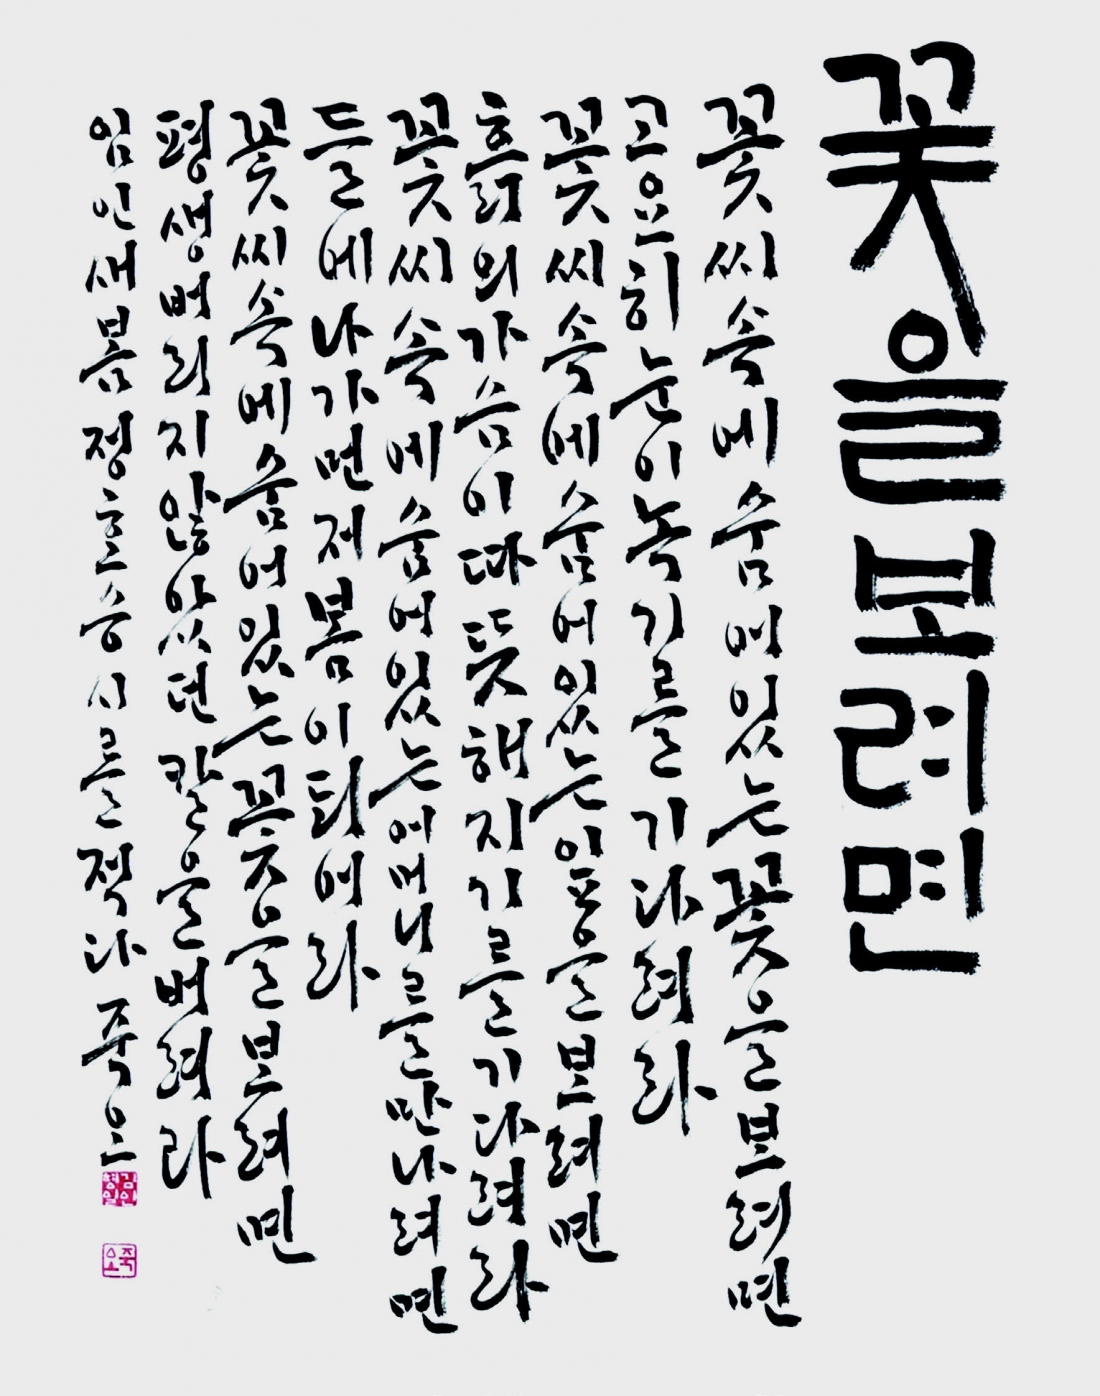 꽃을보려면
꽃씨속에숨어있는꽃을보려면
고요히눈이녹기를기다려라
꽃씨속에숨어있는잎을보려면
흙의가슴이따뜻해지기를기다려라
꽃씨속에숨어있는어머니를만나려면
들에나가먼저봄이되어라
꽃씨속에숨어있는꽃을보려면
평생버리지않았던칼을버려라
임인새봄정호승시를적다죽오
김형일인
죽오